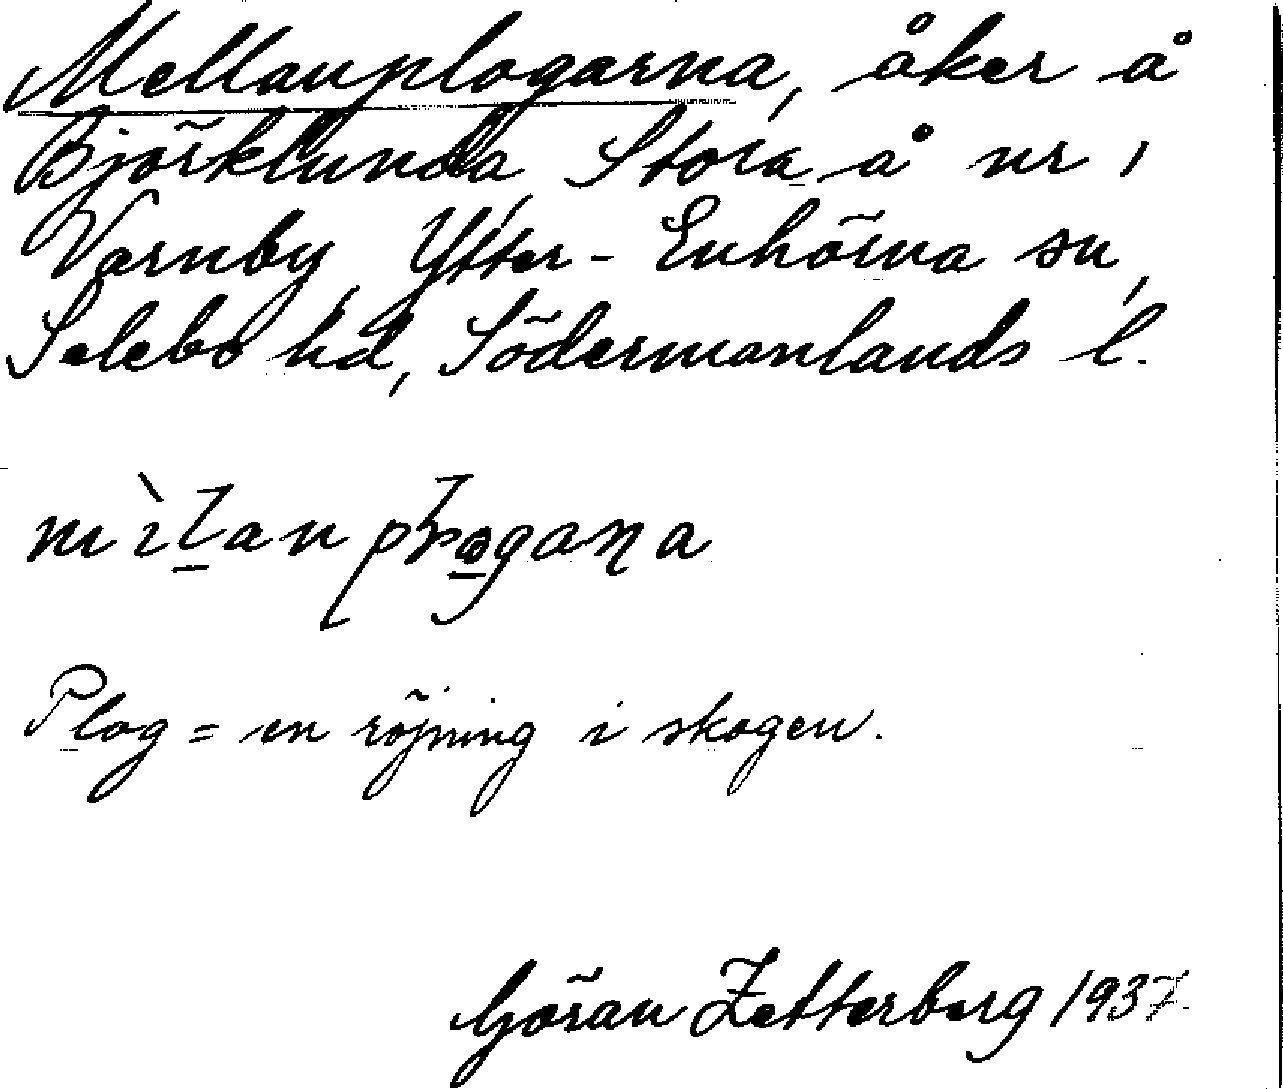 Mellanplogarna, åker å
Björklunda, Stora å nr 1
Varnby, Ytter-Enhörna sn,
Selebo hd, Södermanlands l.
Plog = en röjning i skogen.
Göran Zetterberg 1937